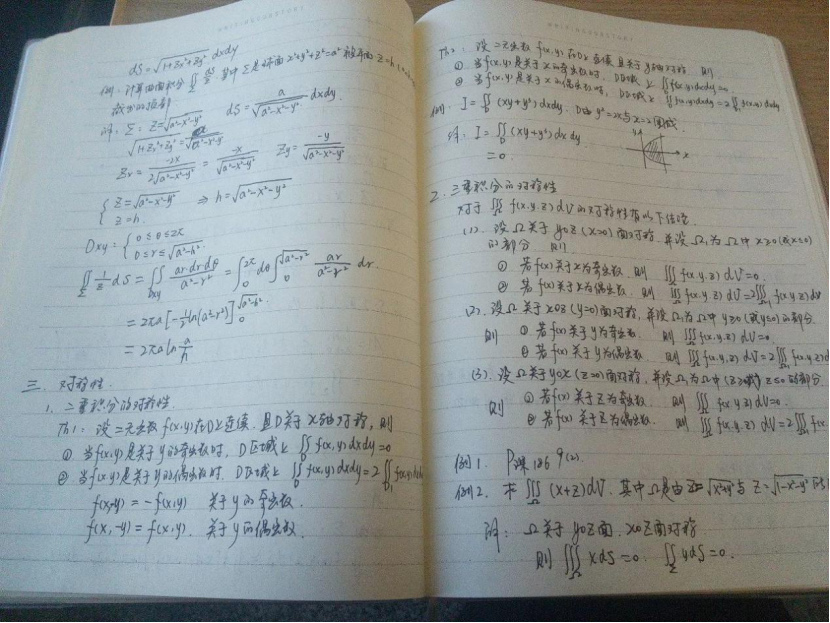 dS = √(1+Zx²+Zy²) dxdy
例: 计算曲面积分 ∬Σ dS/z 其中Σ是球面 x²+y²+z²=a² 被平面 z=h
截出的顶部
解: Σ: Z=√(a²-x²-y²)  dS = a/√(a²-x²-y²) dxdy.
√(1+Zx²+Zy²) = a/√(a²-x²-y²)
Zx = -2x/(2√(a²-x²-y²)) = -x/√(a²-x²-y²)  Zy = -y/√(a²-x²-y²)
{ Z=√(a²-x²-y²)  ⇒ h=√(a²-x²-y²)
z=h.
Dxy = { 0≤θ≤2π
0≤r≤√(a²-h²).
∬Σ 1/z dS = ∬Dxy ar dr dθ/(a²-r²) = ∫₀^2π dθ ∫₀^√(a²-r²) ar/(a²-r²) dr.
= 2πa [-½ ln(a²-r²)]₀^√(a²-h²)
= 2πa ln a/h
三. 对称性.
1. 二重积分的对称性
Th1: 设二元函数 f(x,y) 在D上连续, 且D关于x轴对称, 则
① 当f(x,y)是关于y的奇函数时, D区域上 ∬D f(x,y)dxdy=0
② 当f(x,y)是关于y的偶函数时. D区域上 ∬D f(x,y)dxdy=2∬D₁ f(x,y)dxdy
f(x,-y) = -f(x,y)  关于y的奇函数.
f(x,-y) = f(x,y).  关于y的偶函数.
Th2: 设二元函数 f(x,y) 在D上连续 且关于y轴对称, 则
① 当f(x,y)是关于x的奇函数时. D区域上 ∬D f(x,y)dxdy=0.
② 当f(x,y)是关于x的偶函数时, D区域上 ∬D f(x,y)dxdy=2∬D₁ f(x,y)dxdy
例: I=∬D (xy+y³)dxdy. D由 y²=2x与x=2围成.
解: I=∬D (xy+y³)dxdy
=0.
y
x
2. 三重积分的对称性
对于 ∭Ω f(x,y,z)dV 的对称性有以下结论.
(1). 设Ω关于yoz (x=0)面对称, 并设Ω₁为Ω中x≥0(或x≤0)
的部分  则
① 若f(x)关于x为奇函数. 则 ∭Ω f(x,y,z)dV=0.
② 若f(x)关于x为偶函数. 则 ∭Ω f(x,y,z)dV=2∭Ω₁ f(x,y,z)dV
(2). 设Ω关于xoz (y=0)面对称, 并设Ω₁为Ω中y≥0(或y≤0)的部分.
则 ① 若f(x)关于y为奇函数. 则 ∭Ω f(x,y,z)dV=0.
② 若f(x)关于y为偶函数. 则 ∭Ω f(x,y,z)dV=2∭Ω₁ f(x,y,z)d
(3). 设Ω关于yox (z=0)面对称, 并设Ω₁为Ω中(z≥0或) z≤0的部分.
则 ① 若f(x)关于z为奇函数. 则 ∭Ω f(x,y,z)dV=0.
② 若f(x)关于z为偶函数. 则 ∭Ω f(x,y,z)dV=2∭Ω₁ f(x.
例1. P课186 9(2).
例2. 求∭Ω (x+z)dV. 其中Ω是由z=√(x²+y²)与z=√(1-x²-y²)所
解: Ω关于yoz面, xoz面对称
则 ∭Ω xdS=0. ∬Σ ydS=0.